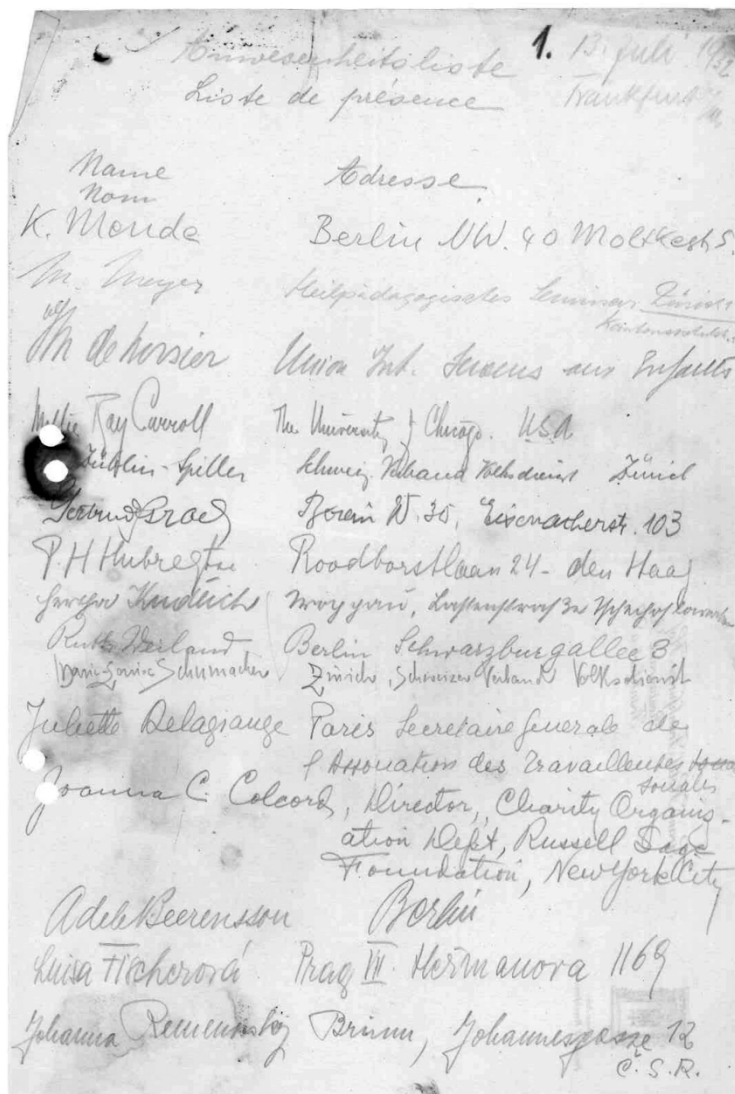 Anwesenheitsliste 1. 13. Juli 1932
Liste de présence Frankfurt
Name Adresse
Nom
K. Mende Berlin NW. 40 Moltkestr. 5.
M. Meyer Heilpädagogisches Seminar Zürich
Kantonsschulstr.
de Morsier Union Int. Secours aux Enfants
Mollie Ray Carroll The University of Chicago. USA
Züblin-Spiller Schweiz. Verband Volksdienst Zürich
Gertrud Israel Berlin W. 30, Eisenacherstr. 103
P. H. Hubregtse Roodborstlaan 24 - den Haag
Hertha Kudlich Troppau, Tschechoslowakei
Ruth Weiland Berlin Schwarzburgallee 8
Schumacher Zürich, Schweizer Verband Volksdienst
Juliette Delagrange Paris Secretaire Generale de
l'Association des Travailleuses
sociales
Joanna C. Colcord, Director, Charity Organis-
ation Dept, Russell Sage
Foundation, New York City
Adele Beerensson Berlin
Luisa Fischerová Prag VII Heřmanova 1169
Johanna Brünn, Johannesgasse 12
Č.S.R.